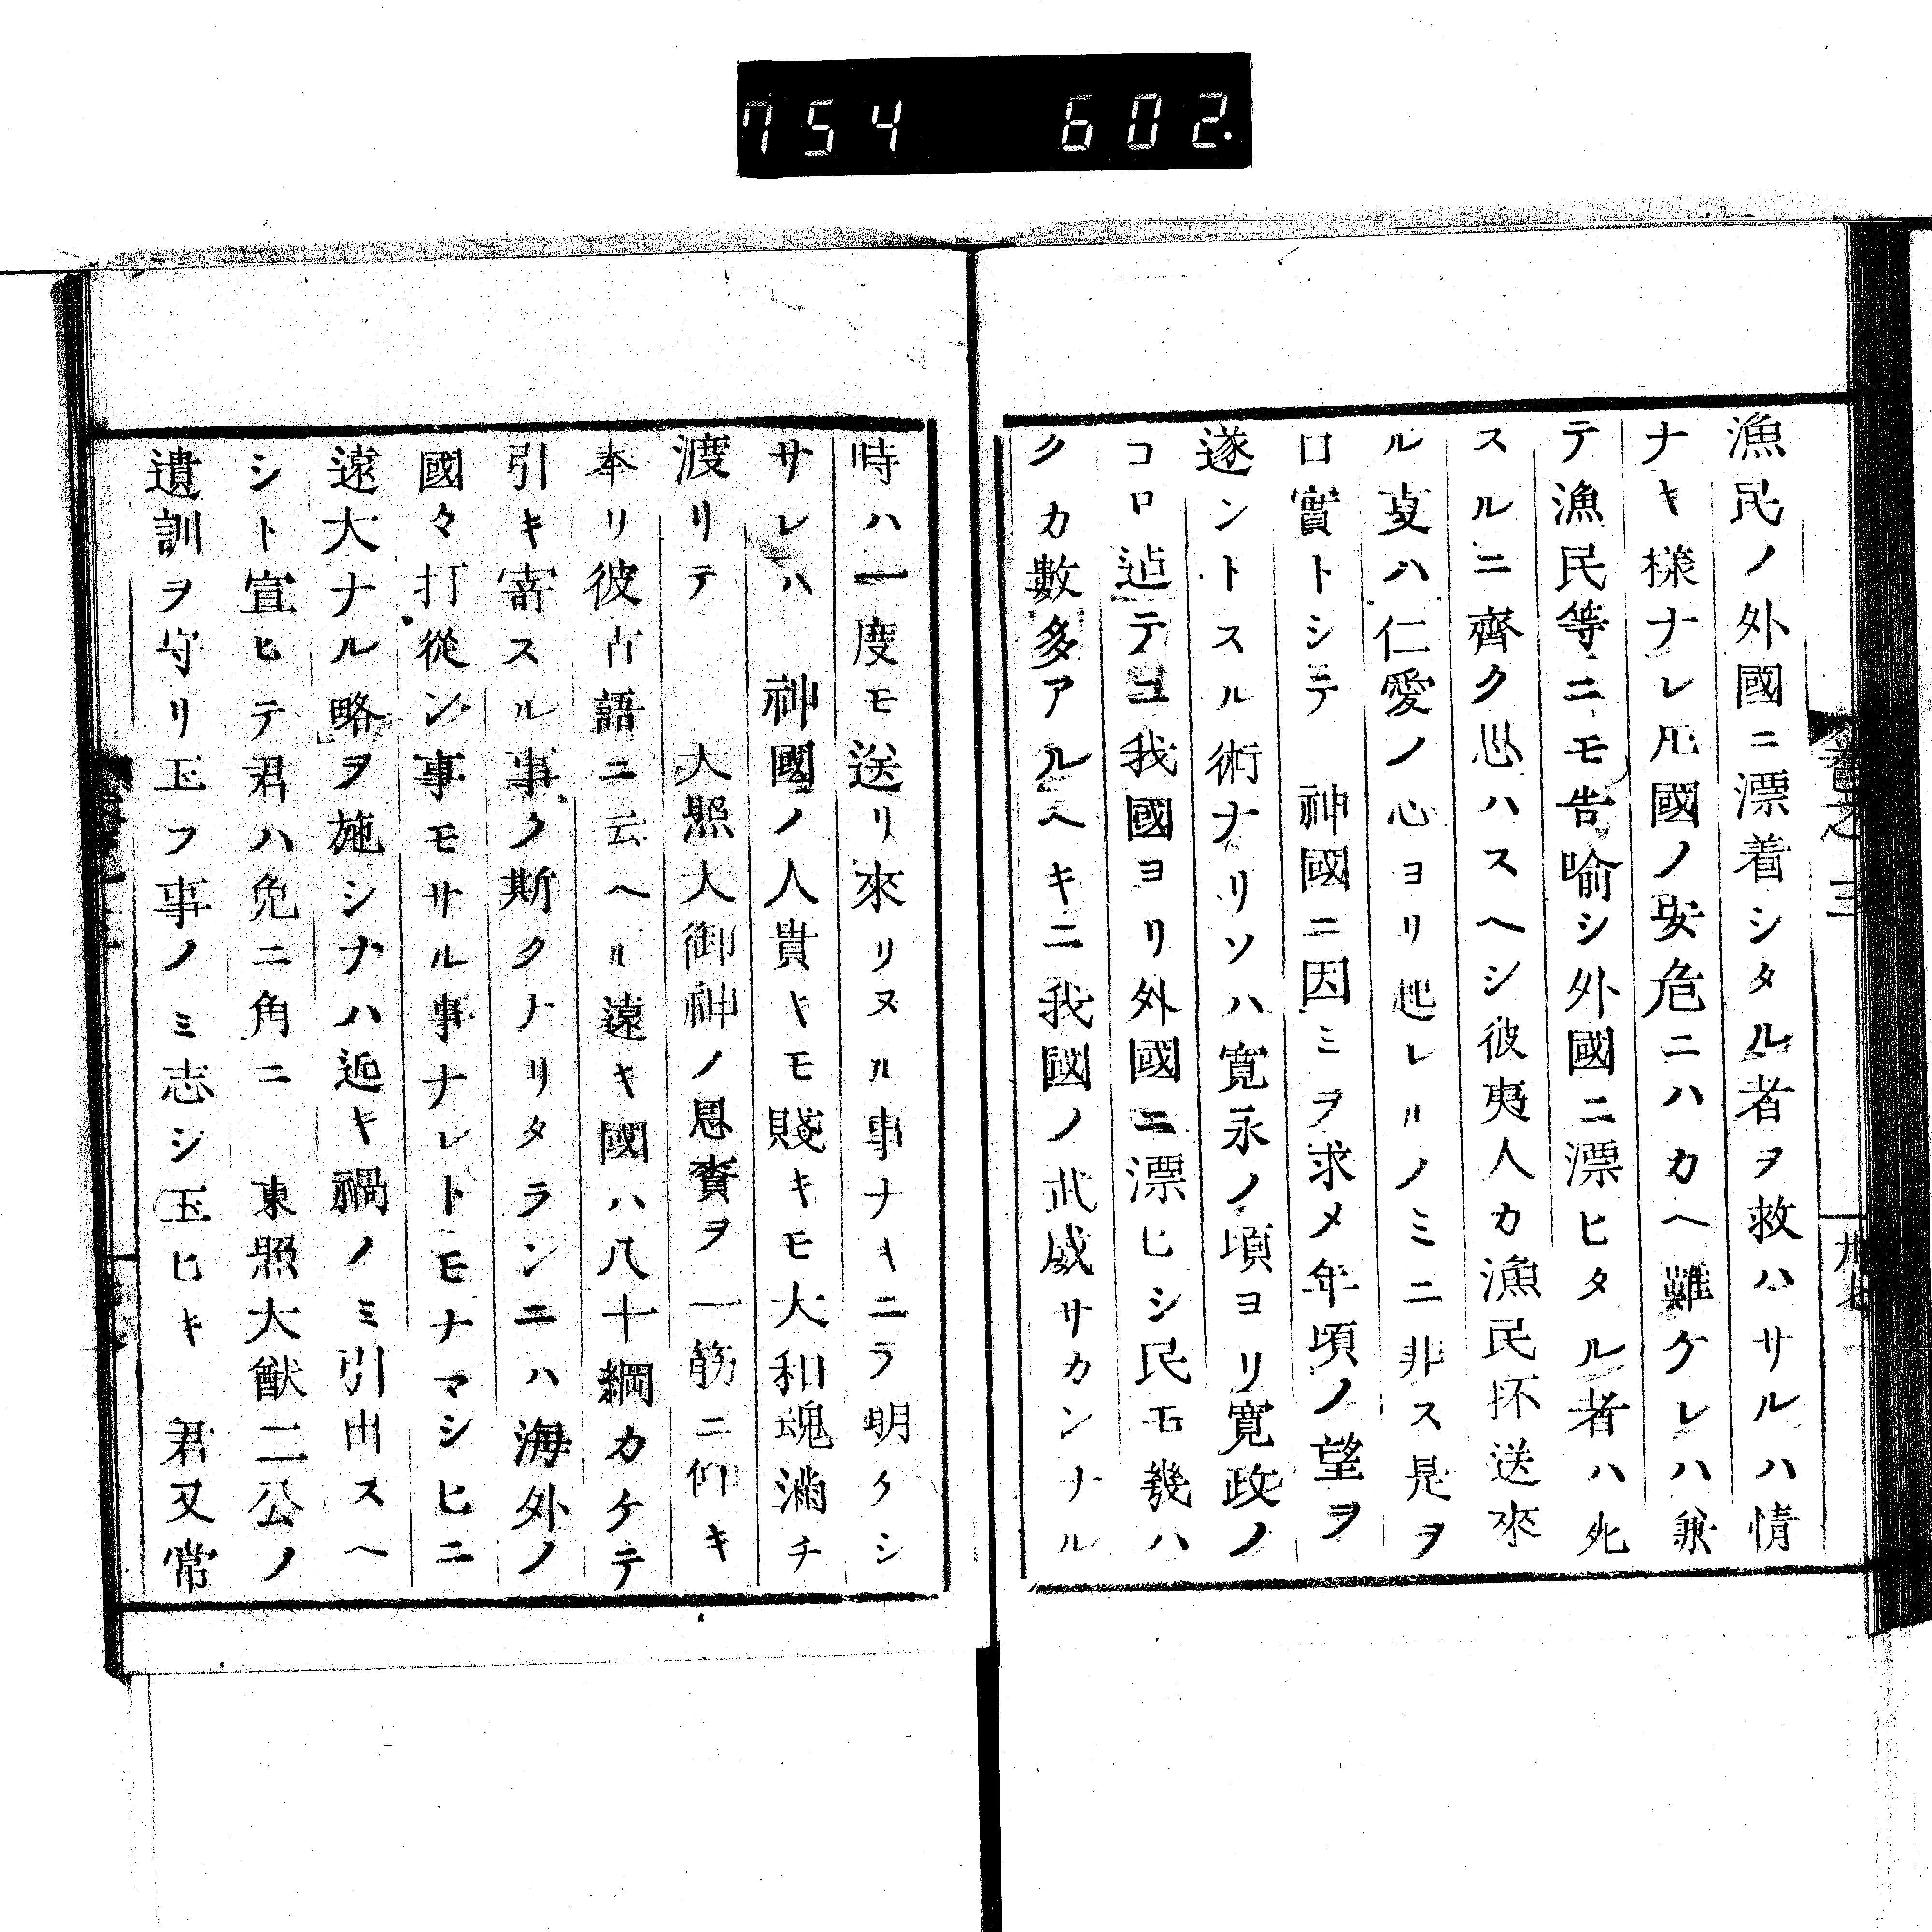 754 602.
漁民ノ外國ニ漂着シタル者ヲ救ハサルハ情
ナキ様ナレ𪜈國ノ安危ニハカヘ難ケレハ兼
テ漁民等ニモ告喩シ外國ニ漂ヒタル者ハ死
スルニ齊ク思ハスヘシ彼夷人カ漁民抔送來
ル㕝ハ仁愛ノ心ヨリ起レルノミニ非ス是ヲ
口實トシテ　神國ニ因ミヲ求メ年頃ノ望ヲ
遂ントスル術ナリソハ寛永ノ頃ヨリ寛政ノ
コロ迠テコ我國ヨリ外國ニ漂ヒシ民モ幾ハ
クカ數多アルヘキニ我國ノ武威サカンナル
時ハ一度モ送リ來リヌル事ナキニラ明ケシ
サレハ　神國ノ人貴キモ賤キモ大和魂満チ
渡リテ　大照大御神ノ恩賚ヲ一筋ニ仰キ
奉リ彼古語ニ云ヘル遠キ國ハ八十綱カケテ
引キ寄スル事ノ斯クナリタランニハ海外ノ
國々打從ン事モサル事ナレトモナマシヒニ
遠大ナル略ヲ施シナハ近キ禍ノミ引出スヘ
シト宣ヒテ君ハ兔ニ角ニ　東照大猷二公ノ
遺訓ヲ守リ玉フ事ノミ志シ玉ヒキ　君又常
卷之三
卅七